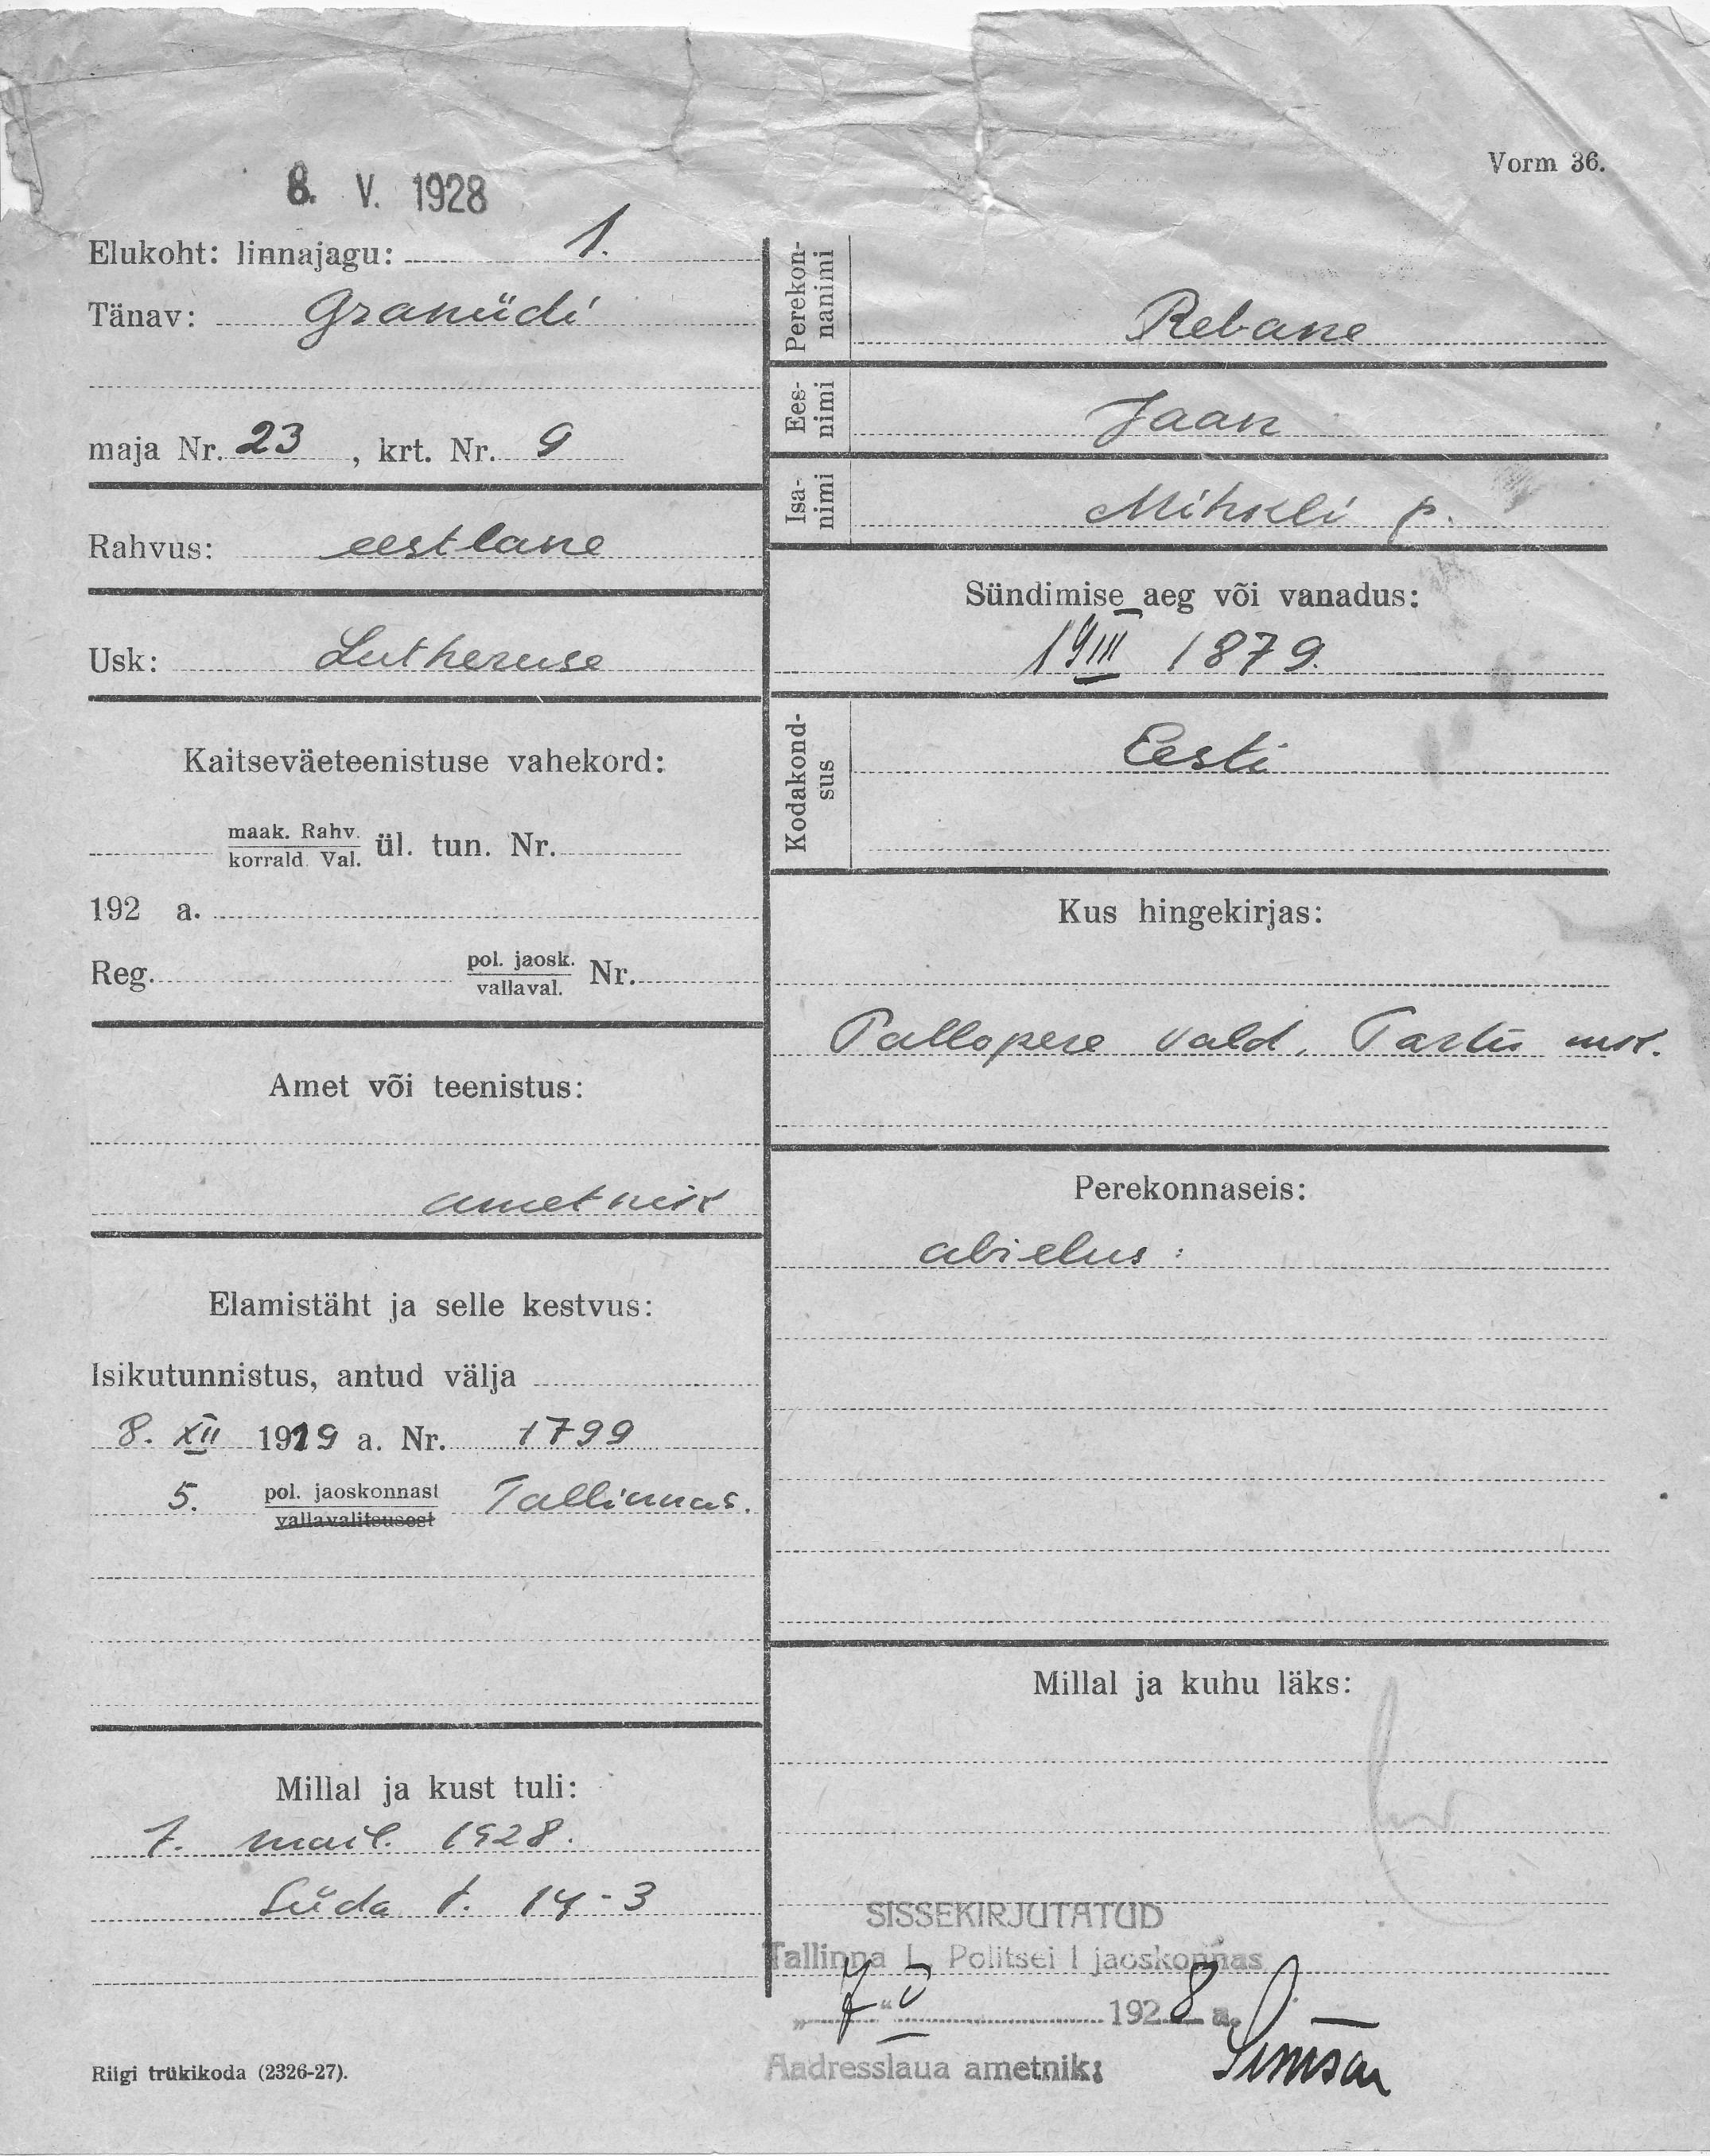 8. V. 1928
Vorm 36.
Elukoht: linnajagu: 1.
Tänav: Graniidi
maja Nr. 23, krt. Nr. 9
Rahvus: eestlane
Usk: Lutheruse
Kaitseväeteenistuse vahekord:
maak. Rahv.
korrald. Val.
ül. tun. Nr.
192 a.
Reg. pol. jaosk. Nr.
vallaval.
Amet või teenistus:
ametnik
Elamistäht ja selle kestvus:
Isikutunnistus, antud välja
8. XII 1919 a. Nr. 1799
5. pol. jaoskonnast Tallinnas.
vallavalitsusest
Millal ja kust tuli:
7. mail. 1928.
Süda t. 14-3
Riigi trükikoda (2326-27).
Perekon-
nanimi
Rebane
Ees-
nimi
Jaan
Isa-
nimi
Mihkli p.
Sündimise aeg või vanadus:
19 III 1879.
Kodakond-
sus
Eesti
Kus hingekirjas:
Pallopere vald, Tartu mk.
Perekonnaseis:
abielus:
Millal ja kuhu läks:
SISSEKIRJUTATUD
Tallinna L. Politsei I jaoskonnas
„7“ V 1928 a.
Aadresslaua ametnik: